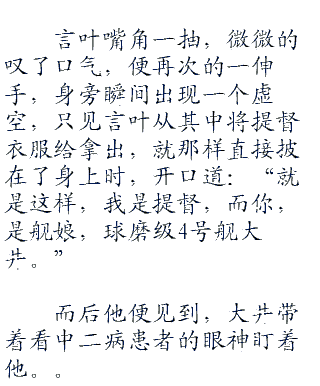 言叶嘴角一抽，微微的
叹了口气，便再次的一伸
手，身旁瞬间出现一个虚
空，只见言叶从其中将提督
衣服给拿出，就那样直接披
在了身上时，开口道：“就
是这样，我是提督，而你，
是舰娘，球磨级4号舰大
井。”
而后他便见到，大井带
着看中二病患者的眼神盯着
他。。